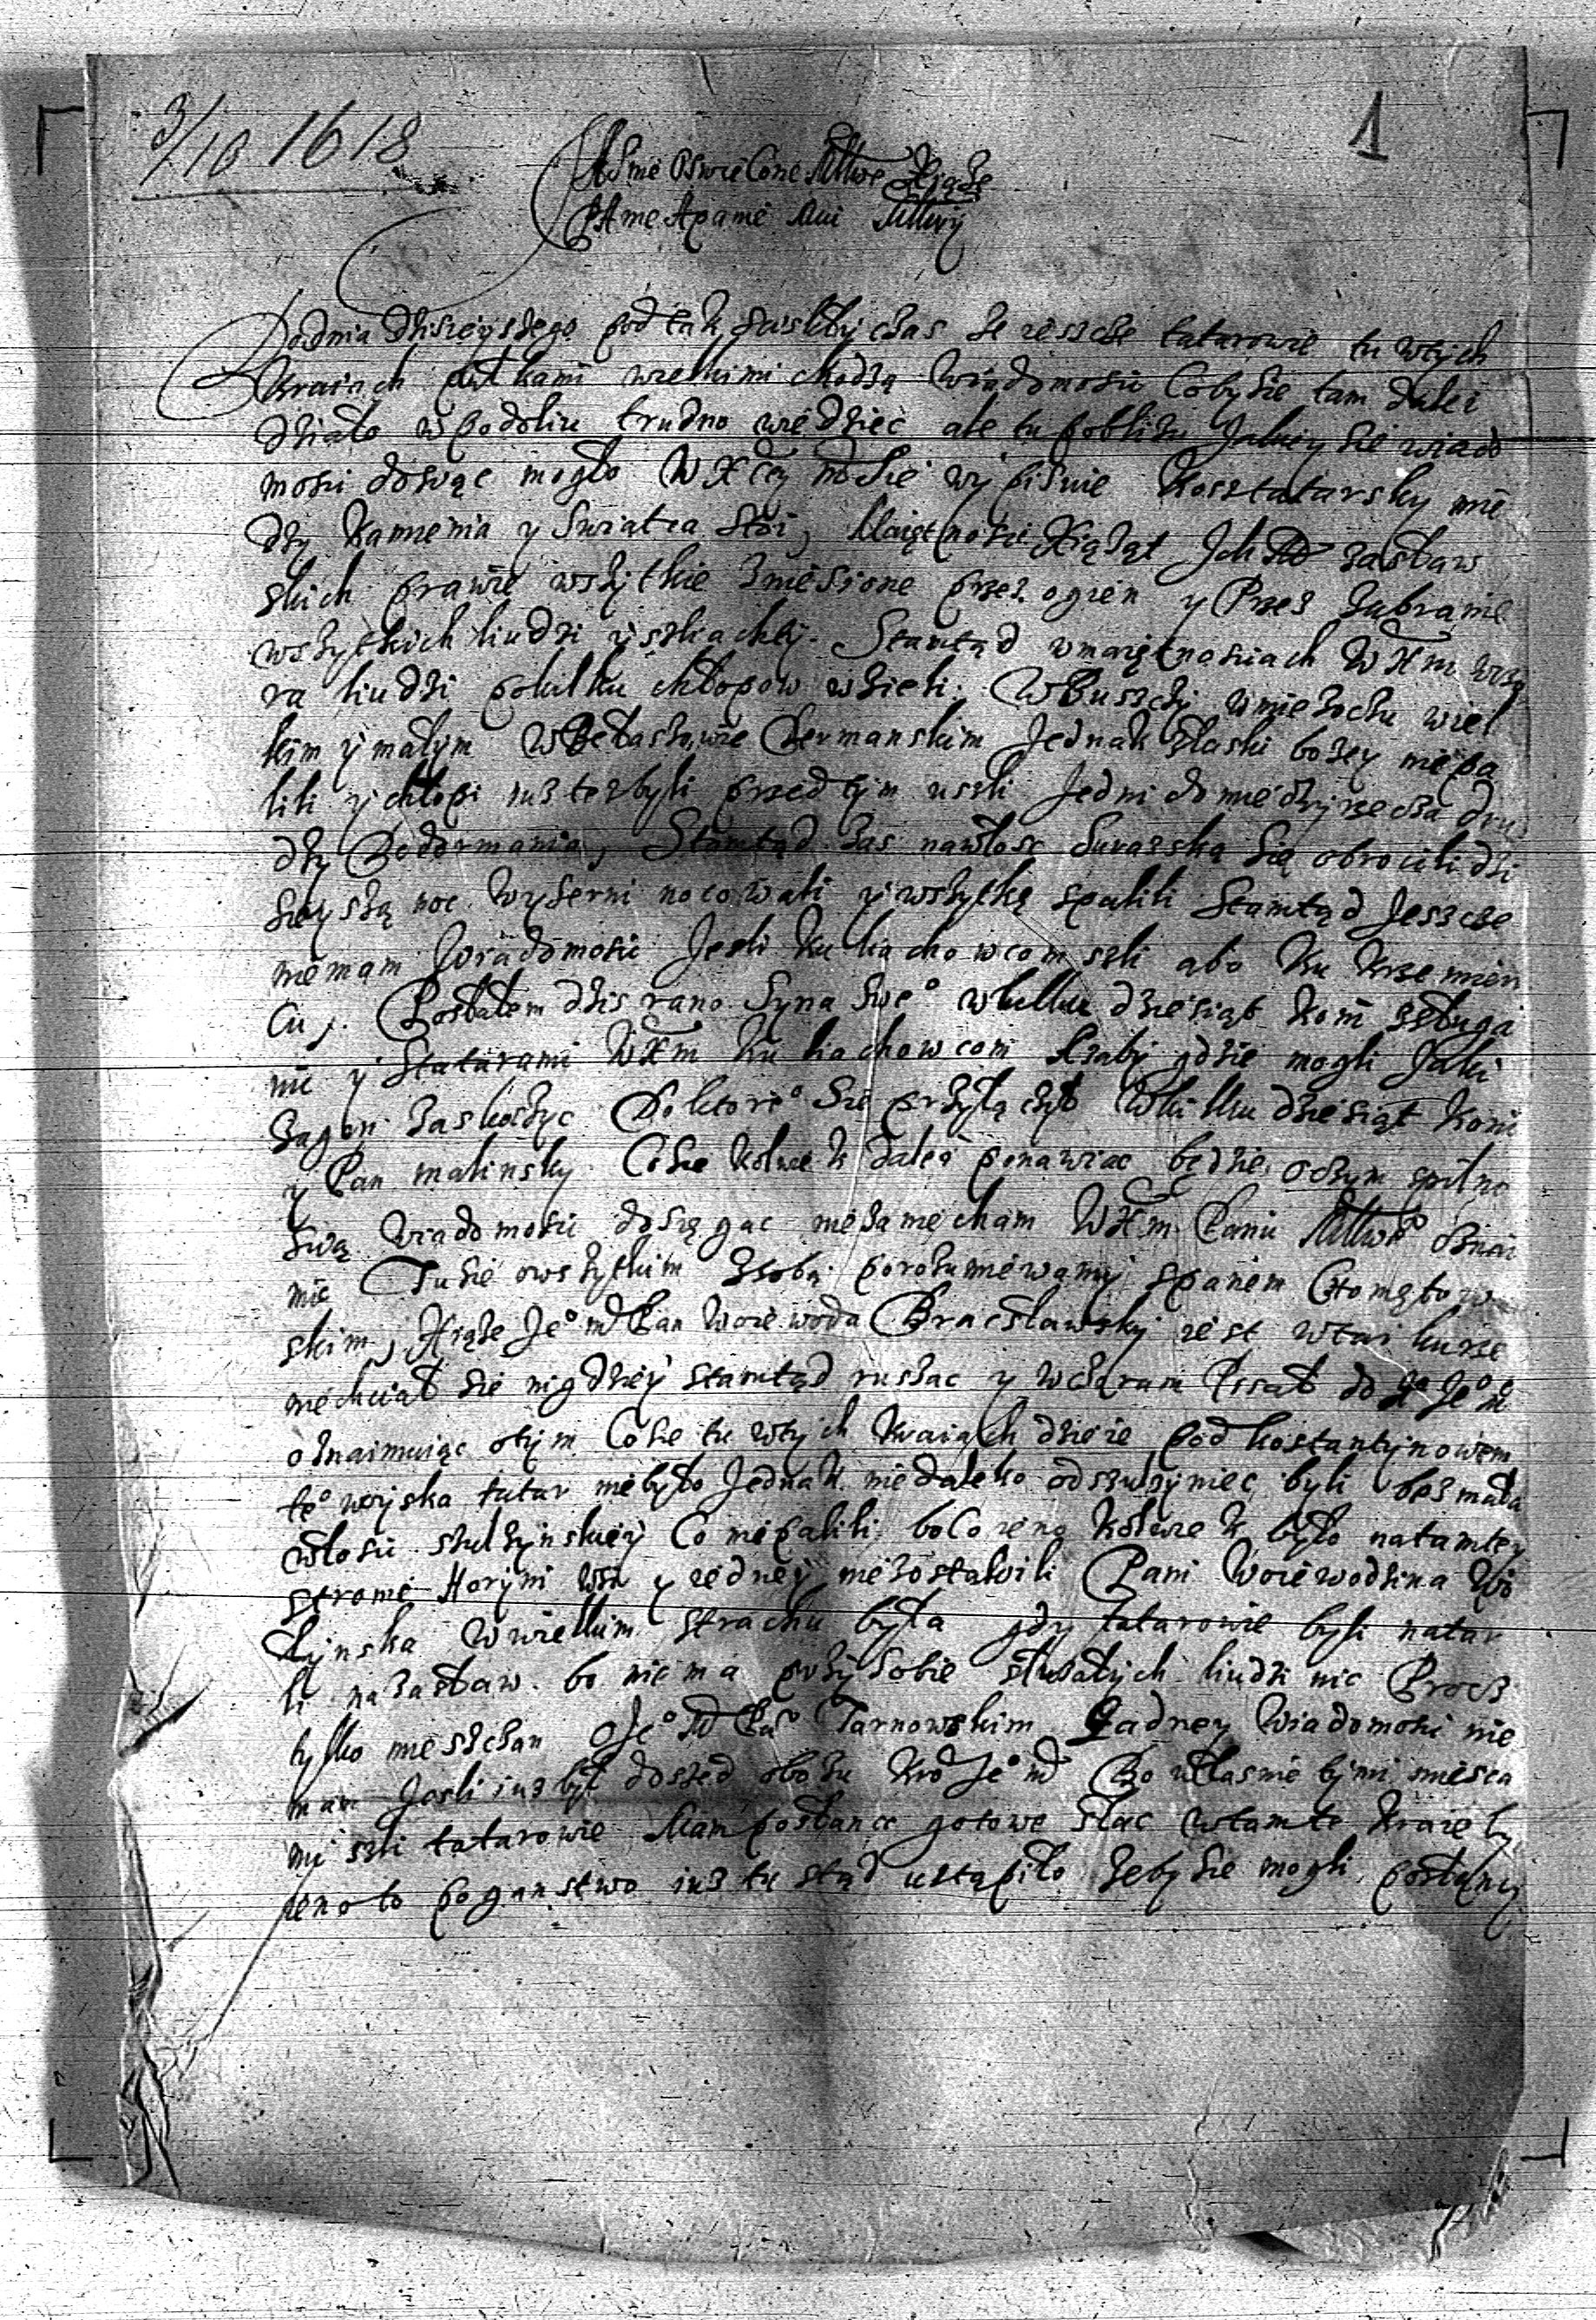 3/10 1618
1
JAsnie Oswiecone Mllwe Xiąże
PAnie A panie Mui Mllwy
Do dnia dzisieyszego pod tak zawisły czas że ieszcze tatarowie tu wtych
kraiach pułkami wielkimi chodzą wiadomosci Coby sie tam dalei
działo w podoliu trudno wiedziec ale tu pobliżu Jakiey sie wiado
mosci dosiąc mogło W X Mcy wypisuie Kosz tatarsky mie
dzy kamienia y Swiatca stoi, Maiętnosci Xiąząt Jch M zasław
skich prawie wszytkie zniesione przez ogien y Przez zabranie
wszytkich liudzi y szliachty. Stamtąd w maiętnosciach W X m
ra liudzi po kilku chłopow wzieli. W Buszczy w mieżochu wiel
kim y małym W Bełaszowie Dermanskim Jednak z łaski bozey nie pa
lili y chłopi iuz tez byli przed tym uszli Jedni do miedzyrzecza dru
dzy Do dormania, Stamtąd zas na włosc Surazską się obrocili dzi
sieyszą noc wyserni nocowali y wszytką spalili Stamtąd Jeszcze
niemam Wiadomosci Jesli Ku liachowcom szli abo Ku Krzemień
cu. Posłałem dzis rano Syna Swe° w kilku dziesiąt koni z sługa
mi y Statarami W X m ku liachowcom Azaby gdzie mogli Jaki
zagon zaskoczyc Do ktore° Sie przyłączył W kilku dziesiąt koni
y Pan malinsky. Co sie kolwiek daley ponawiac będzie o czym spilno
scią wiadomosci dosięgac nie zaniecham W X m Panu Mllwe° oznai
mic Tu sie o wszytkim z sobą porozumiewamy s panem Chomętow
skim, Xiąże Je° m Pan Woiewoda Bracsławsky iest w tai kurze
niechciał sie nigdziey stamtąd ruszac y wczoram Pisał do X Je° m
oznaimuiąc o tym Co sie tu w tych kraiach dzieie pod kostantynowem
te° woyska tatar niebyło Jednak niedaleko od szulzyniec byli bez mała
włosci szulzynskiey Co nie palili bo Co ieno kolwiek było na tamtey
stronie Horyni wsi y iedney nie zostawili Pani Woiewodzina Wo
łynska W wielkim strachu była gdy tatarowie byli natar
li na zasław. bo niema przy sobie służałych liudzi nic Procz
tylko mieszczan O Je° M Pa° Tarnowskim Zadney Wiadomosci nie
mam Jesli iuz był doszed obozu Kro Je° m Bo własnie tymi miesca
mi szli tatarowie Mam posłance gotowe słac w tamte kraie ly
ieno to poganstwo iuz tu stąd ustąpiło zeby sie mogli posłancy